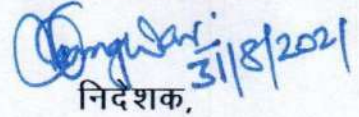 31/8/2021
निदेशक,